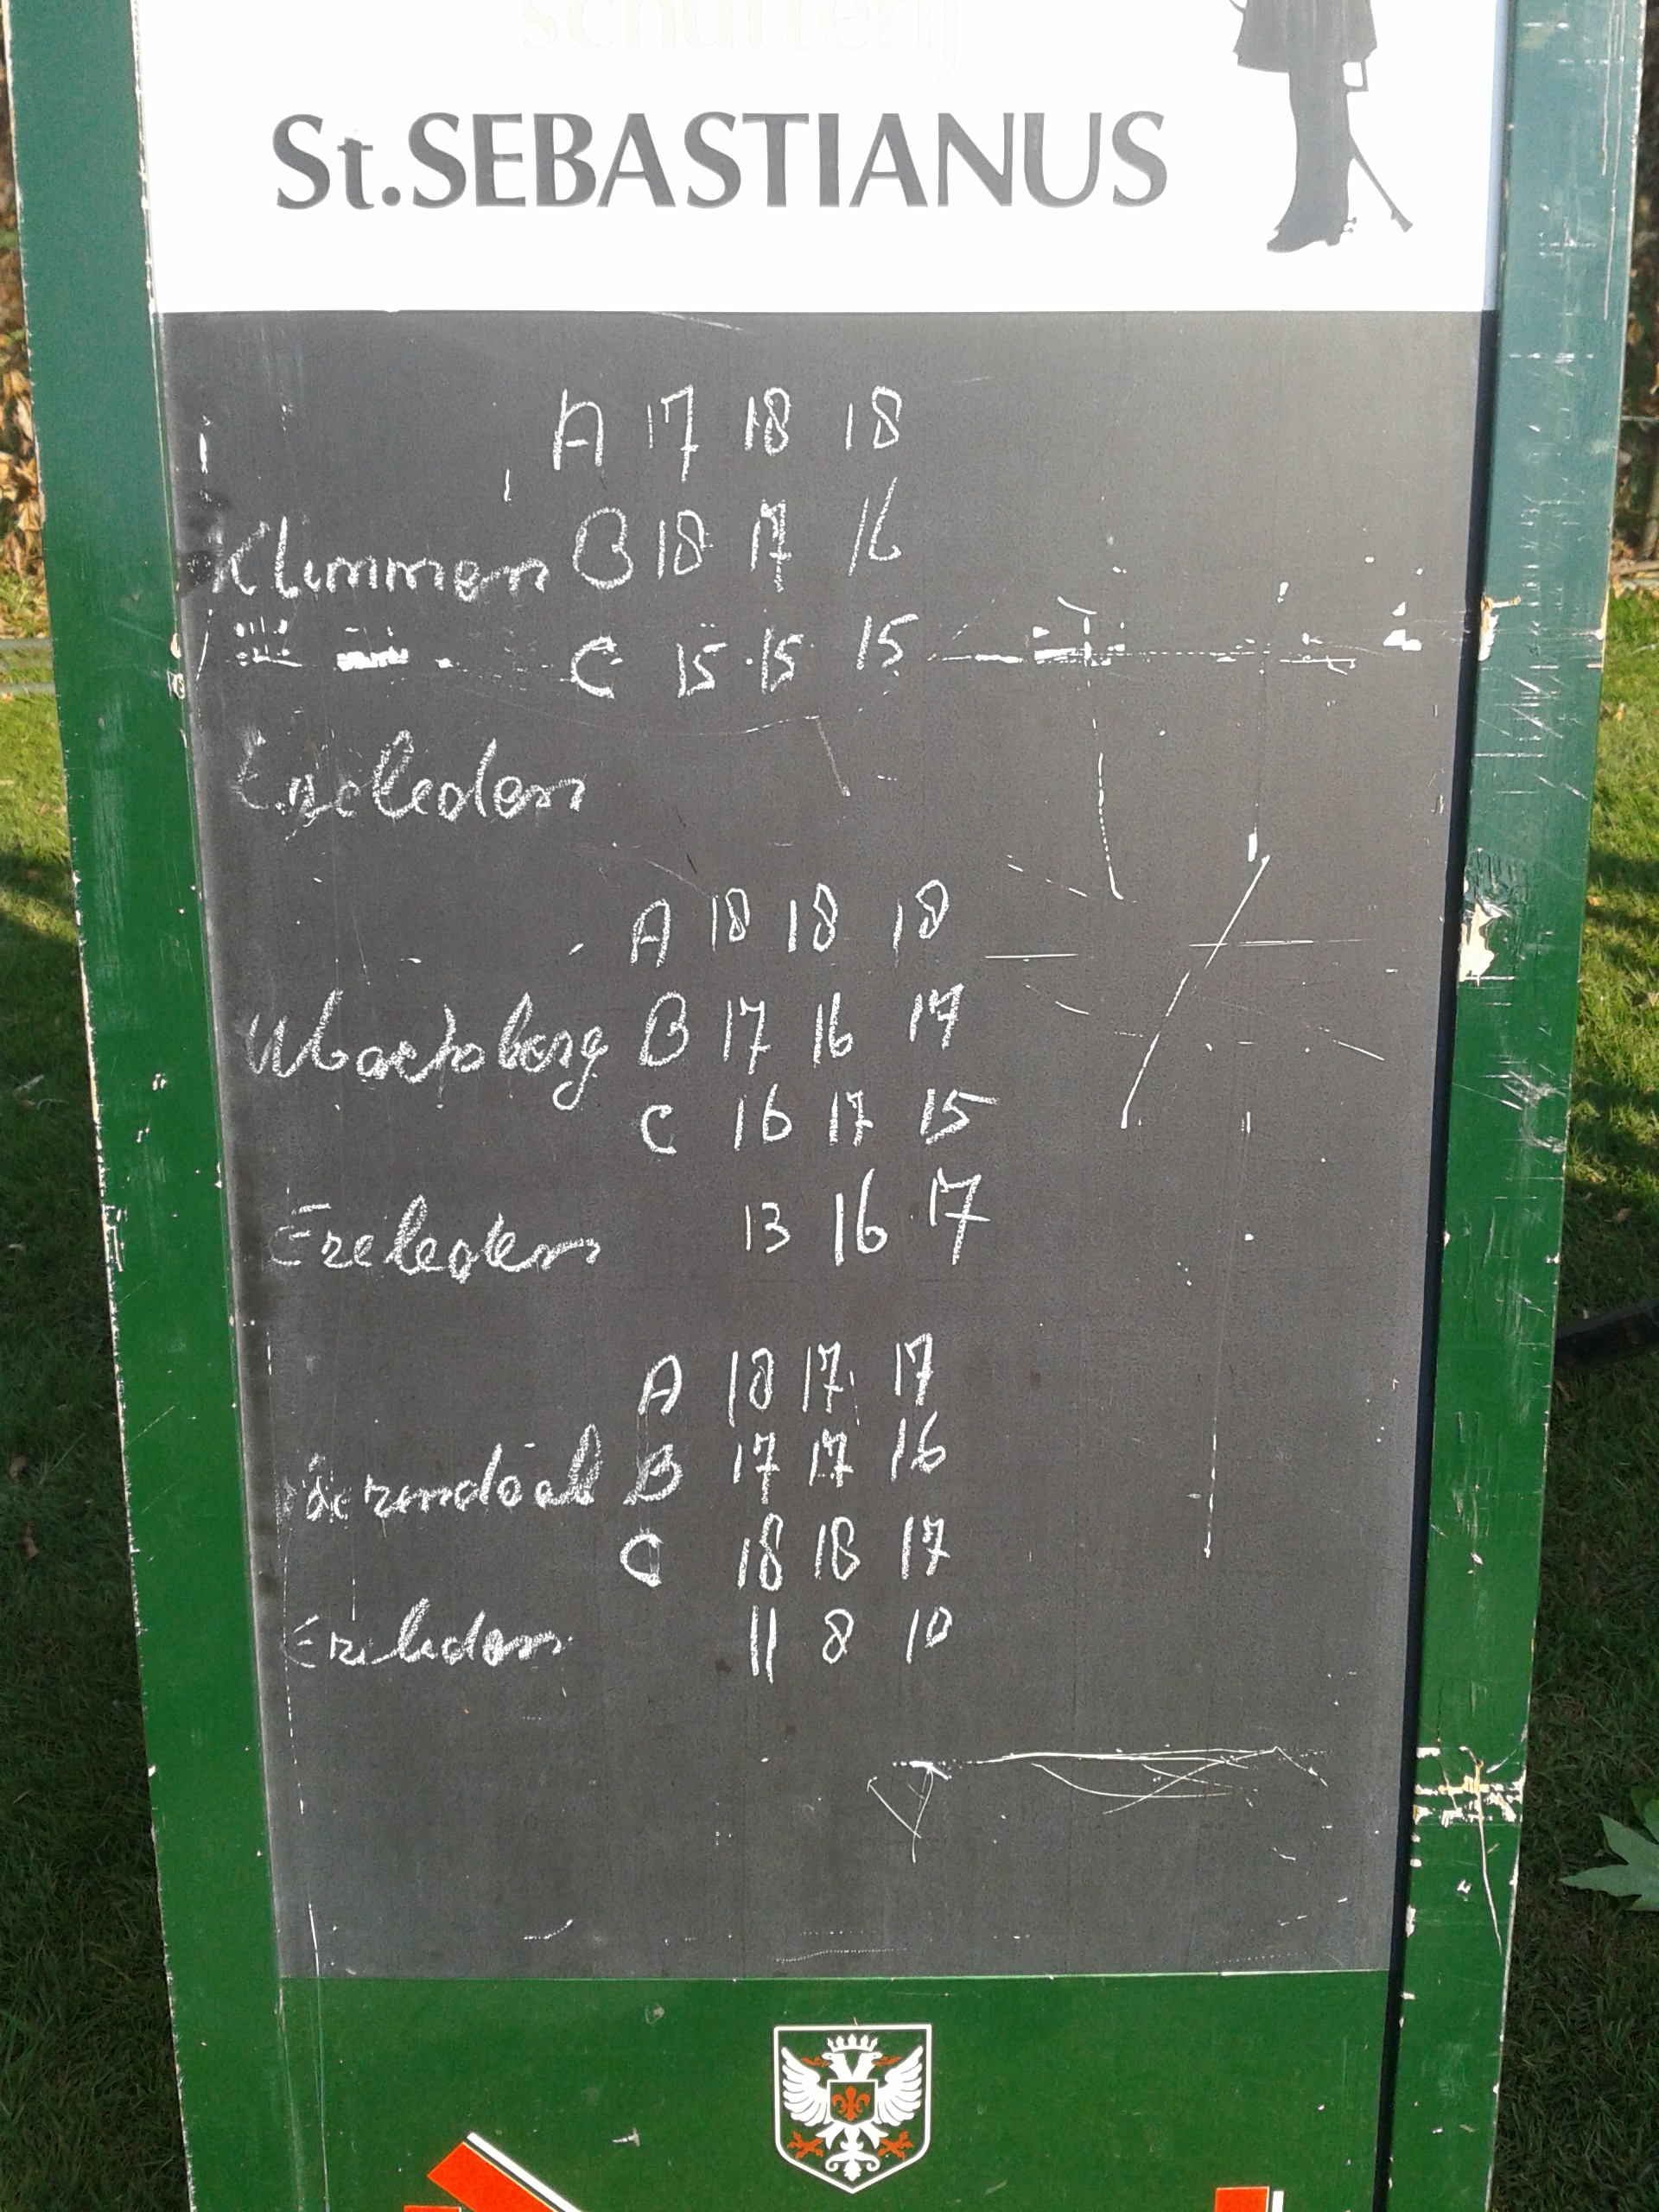 schutterij
St.SEBASTIANUS
A 17 18 18
Klimmen B 18 17 16
C 15 15 15
Ereleden
A 18 18 18
Ubachsberg B 17 16 17
C 16 17 15
Ereleden 13 16 17
A 18 17 17
Voerendaal B 17 17 16
C 18 18 17
Ereleden 11 8 10